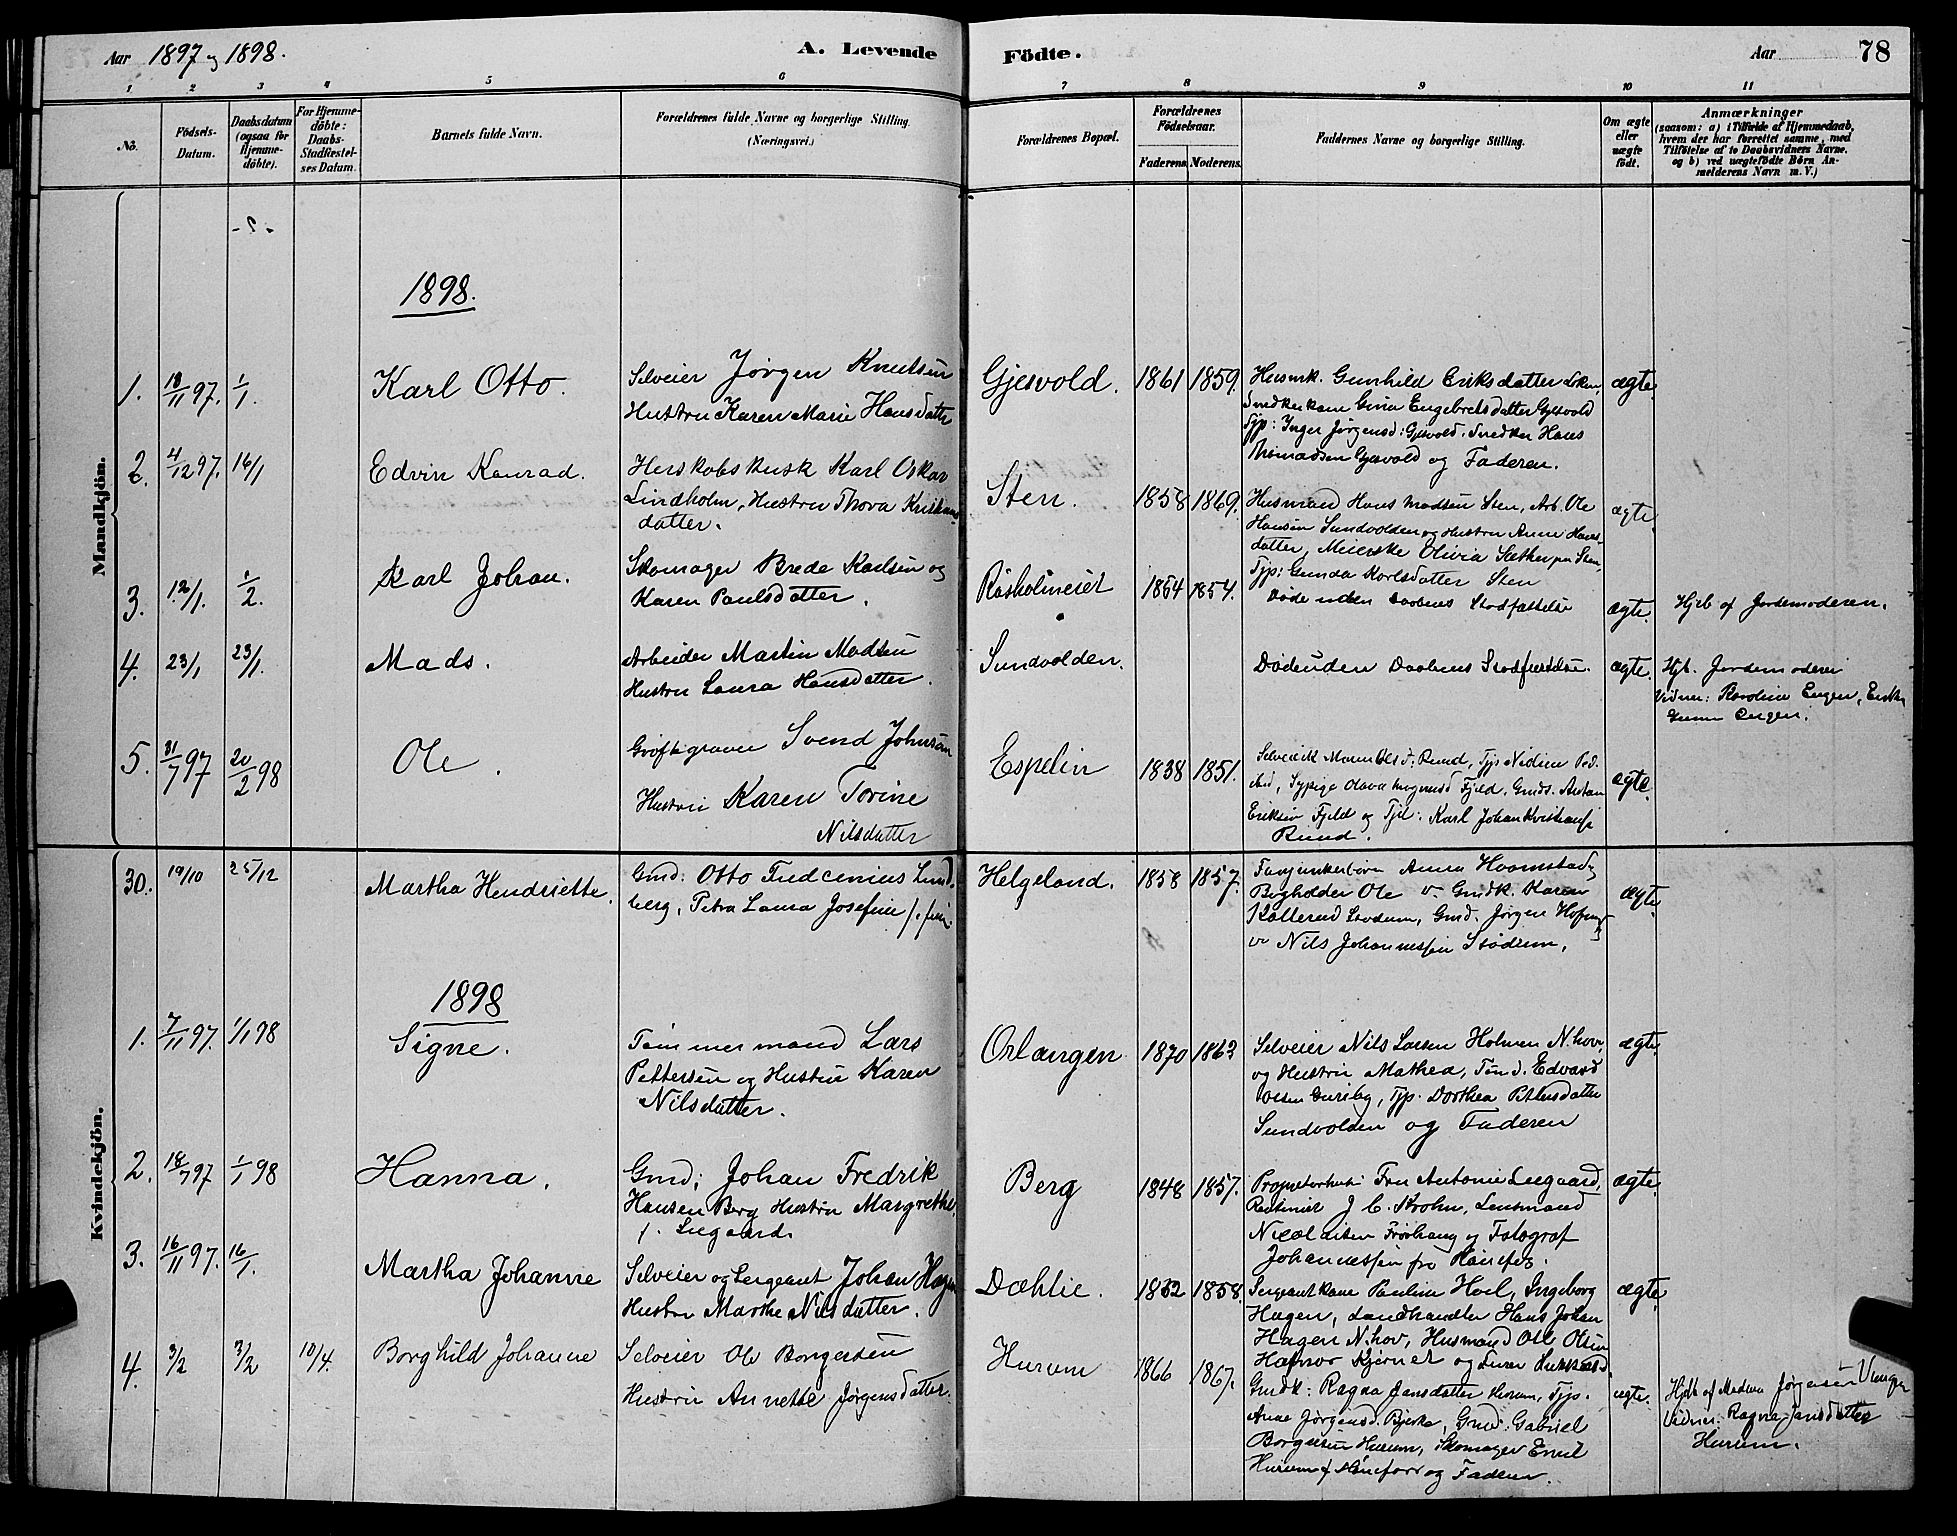 Aar 1897 og 1898.
A. Levende
Födte.
Aar
78
1 2 3 4 5 6 7 8 9 10 11
No.
Födsels-
Datum.
Daabsdatum
(ogsaa for
Hjemme-
döbte).
For Hjemme-
döbte:
Daabs-
Stadfæstel-
ses Datum.
Barnets fulde Navn.
Forældrenes fulde Navne og borgerlige Stilling
(Næringsvei.)
Forældrenes Bopæl.
Forældrenes
Födselsaar.
Faderens. Moderens.
Faddernes Navne og borgerlige Stilling.
Om ægte
eller
uægte
födt.
Anmærkninger
(saasom: a) i Tilfælde af Hjemmedaab,
hvem der har forrettet samme, med
Tilföielse af to Daabsvidners Navne,
og b) ved uægtefödte Börn An-
melderens Navn m. V.)
Mandkjön.
1898.
1. 18/11 97. 1/1.
Karl Otto.
Selveier Jörgen Knutsen
Hustru Karen Marie Hansdatter
Gjesvold.
1861 1859.
Husmk. Gunhild Eriksdatter
Snedkerkone Gina Engebretsdatter Gjesvold
Tjp: Inger Jørgensd: Gjesvold. Snedker Hans
Thomassen Gjesvold og Faderen.
ægte
2. 4/12 97. 16/1
Edvin Konrad.
Herskabskusk Karl Oskar
Lindholm, Hustru Thora Kristians
datter.
Sten.
1858 1869.
Husmand Hans Madsen Sten, Arb. Ole
Hansen Sundvolden og Hustru Anne Hans-
datter, Meierske Olivia Sæther paa Sten,
Tjp: Gunda Karlsdatter Sten
ægte.
3. 12/1. 1/2.
Karl Johan.
Skomager Brede Karlsen og
Karen Paulsdatter.
1854 1854.
Døde uden Daabens Stadfæstelse
ægte.
Hjdb af Jordemoderen.
4. 23/1 23/1.
Mads.
Arbeider Martin Madsen
Hustru Laura Hansdatter.
Sundvolden.
Døde uden Daabens Stadfæstelse.
ægte.
Hjt. Jordemoderen
Vidner: Karoline Engen,
Engen.
5. 31/7 97 20/2 98
Ole.
Grøftegraver Svend Johnsen
Hustru Karen Torine
Nilsdatter
Espelin
1838 1851.
Eriksen Fjeld og Tjd: Karl Johan Kristiansen
Rund.
ægte.
Kvindekjön.
30. 19/10 25/12
Martha Hendriette.
Gmd: Otto Lund-
berg, Petra Laura Josefine
Helgeland.
1858 1857.
Fanejunkerfrøken Anna
Bogholder Ole Gmdk. Karen
Gmd. Jørgen
Nils Johannessen
ægte.
1898
1. 7/11 97. 1/1 98
Signe.
Tømmermand Lars
Pettersen og Hustru Karen
Nilsdatter.
Orlangen
1870 1863
Selveier Nils Larsen Holmen N. hov,
og Hustru Mathea, Tømd. Edvard
Olsen, Tjp. Dorthea Pettersdatter
Sundvolden og Faderen
ægte.
2. 18/7 97 1/1 98
Hanna.
Gmd: Johan Fredrik
Hansen Berg Hustru Margrethe
f. Leegaard.
Berg
1848 1857.
Fru Antonie Leegaard,
J. C. Krohn, Lensmand
Frøshaug og Fotograf
Johannessen fra Hønefos.
ægte.
3. 16/11 97. 16/1.
Martha Johanne
Selveier og Sergeant Johan Hagen
Hustru Marthe Nilsdatter.
Dæhlie.
1852 1858.
Sergeantkone Pauline Hoel, Ingeborg
Hagen, Landhandler Hans Johan
Hagen N. hov, Husmand Ole Olsen
ægte.
4. 3/2 3/2 10/4.
Borghild Johanne
Selveier Ole Borgersen
Hustru Annette Jørgensdatter.
Hurum
1866 1867.
Gmdk: Ragna Jansdatter Hurum, Tjp.
Anne Jørgensd. Bjerke, Gmd: Gabriel
Borgersen Hurum, Skomager Emil
Hurum af Hønefos og Faderen.
ægte.
Hjdt af Madam Jørgensen
Vidner: Ragna Jansdatter
Hurum.